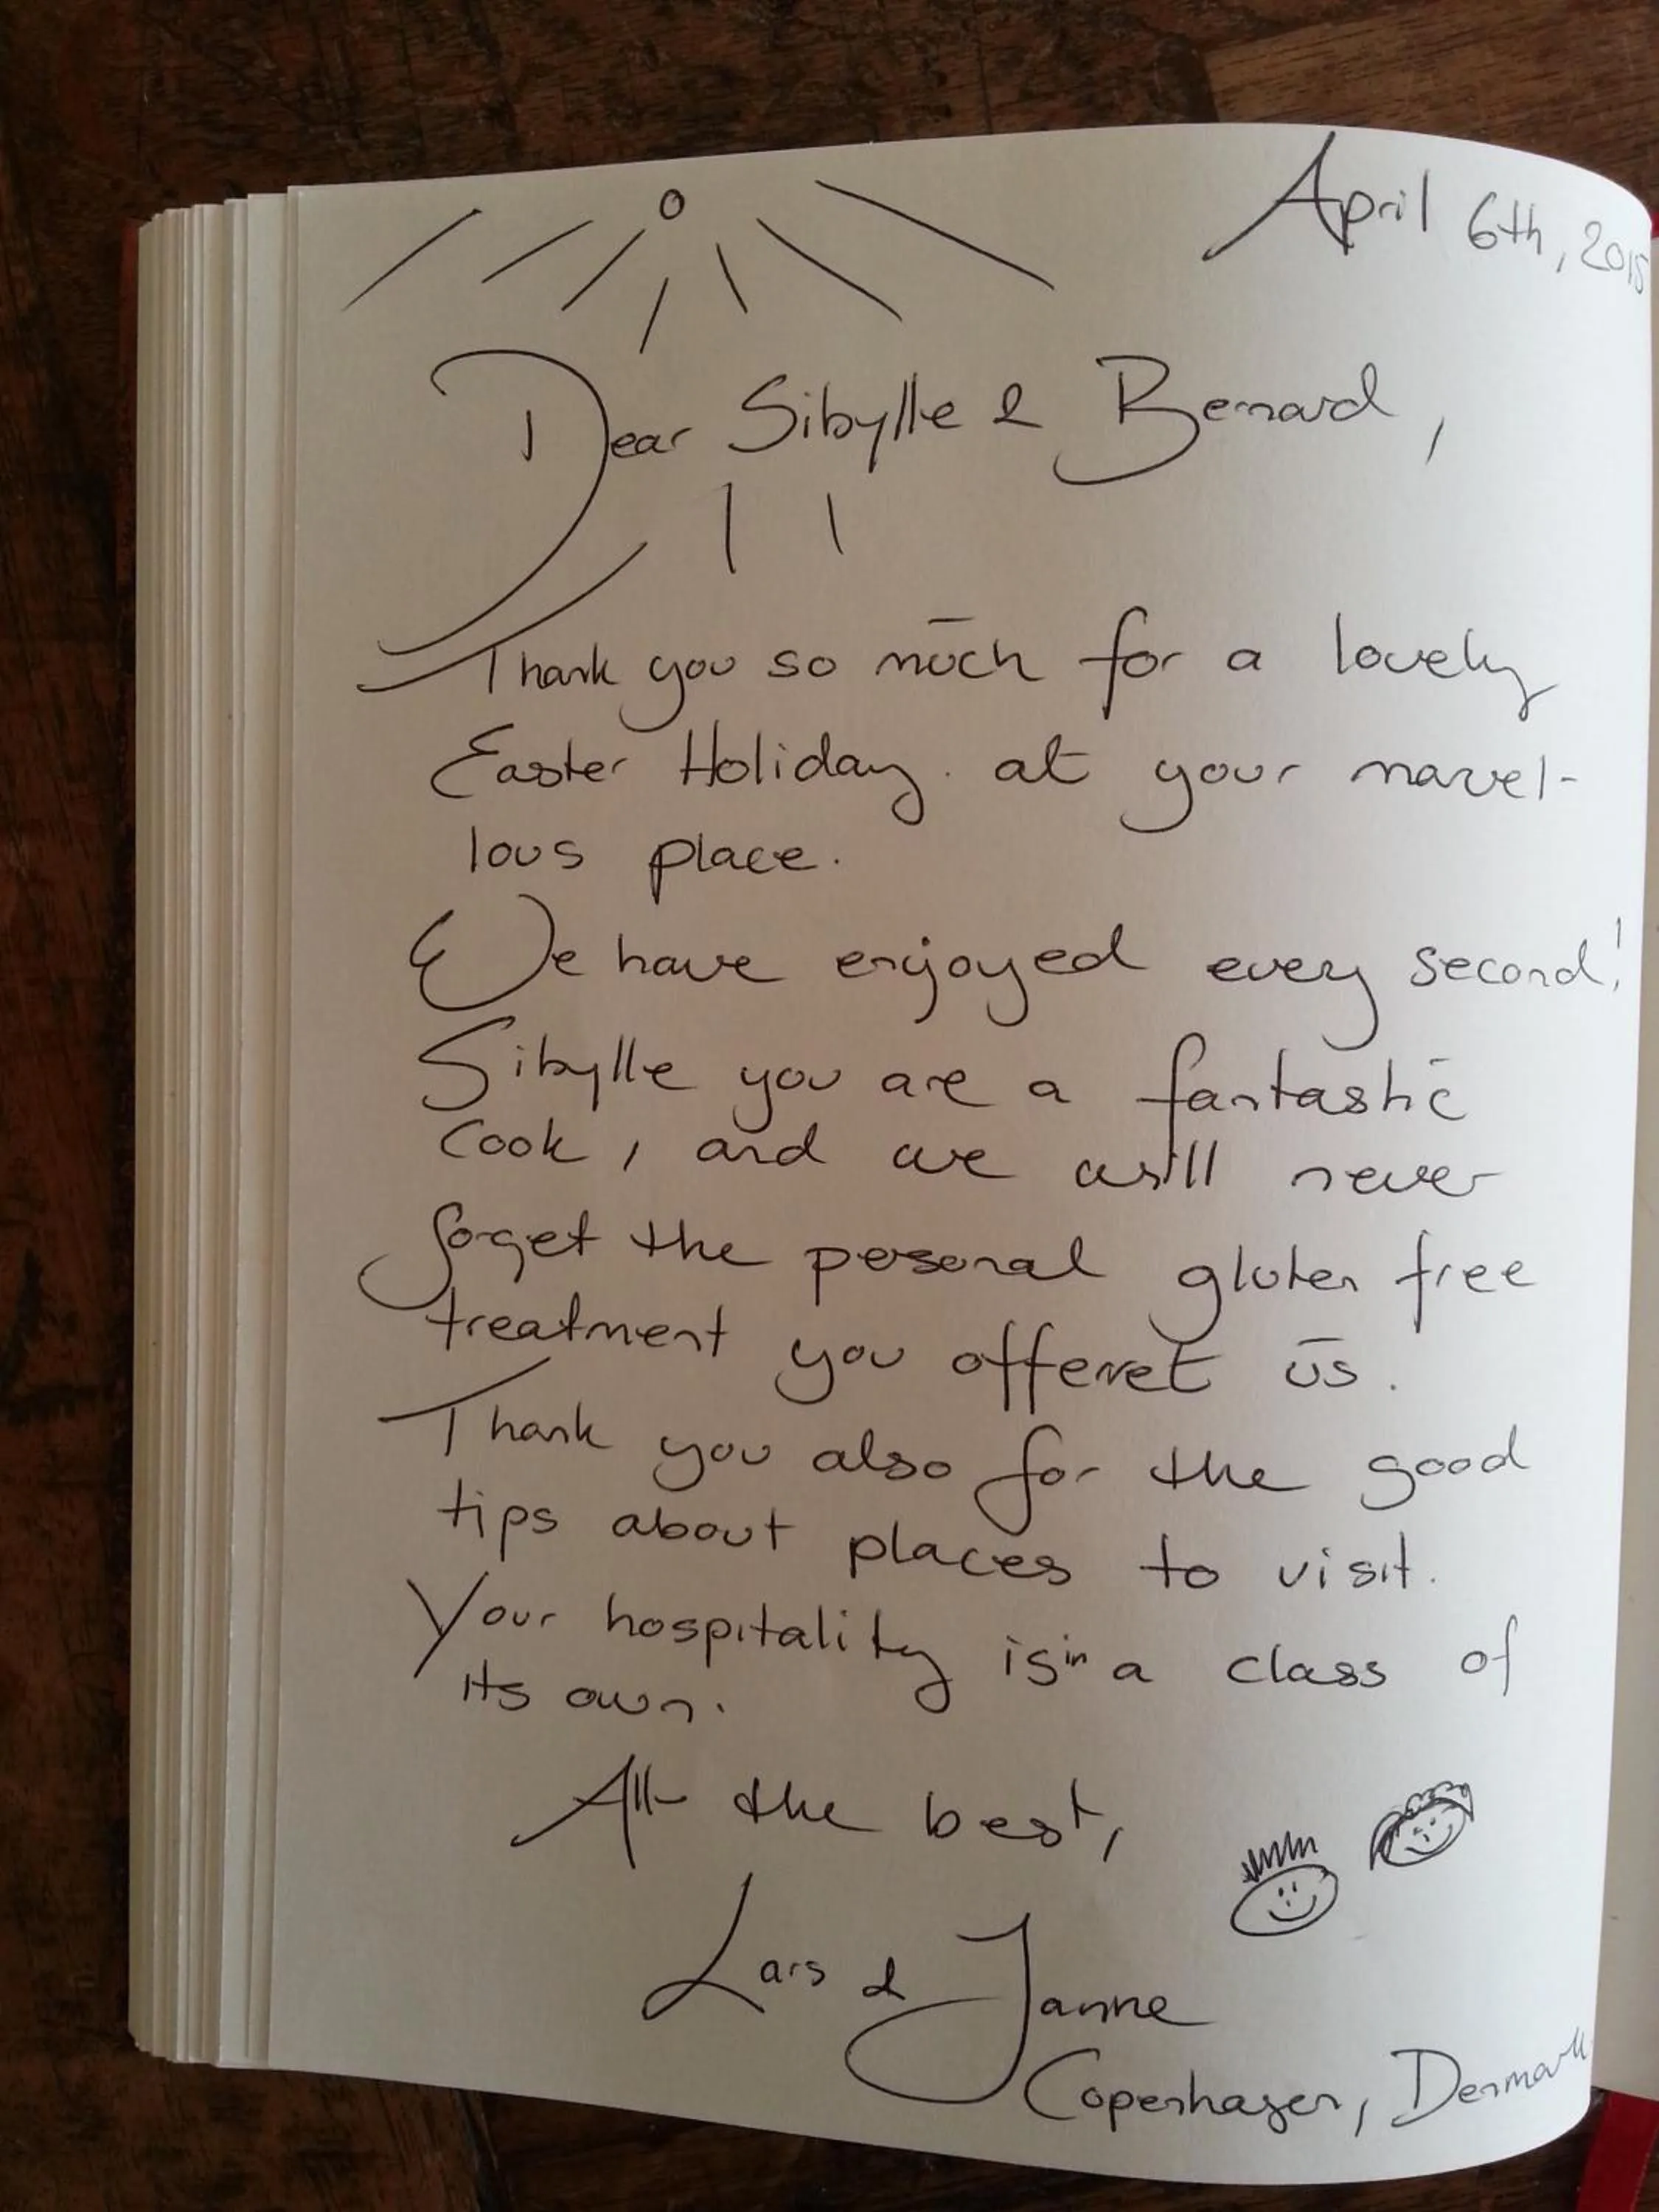 April 6th, 2015
Dear Sibylle & Bernard,
Thank you so much for a lovely
Easter Holiday at your marvel-
lous place.
We have enjoyed every second!
Sibylle you are a fantastic
cook, and we will never
forget the personal gluten free
treatment you offeret us.
Thank you also for the good
tips about places to visit.
Your hospitality is in a class of
its own.
All the best,
Lars & Janne
Copenhagen, Denmark